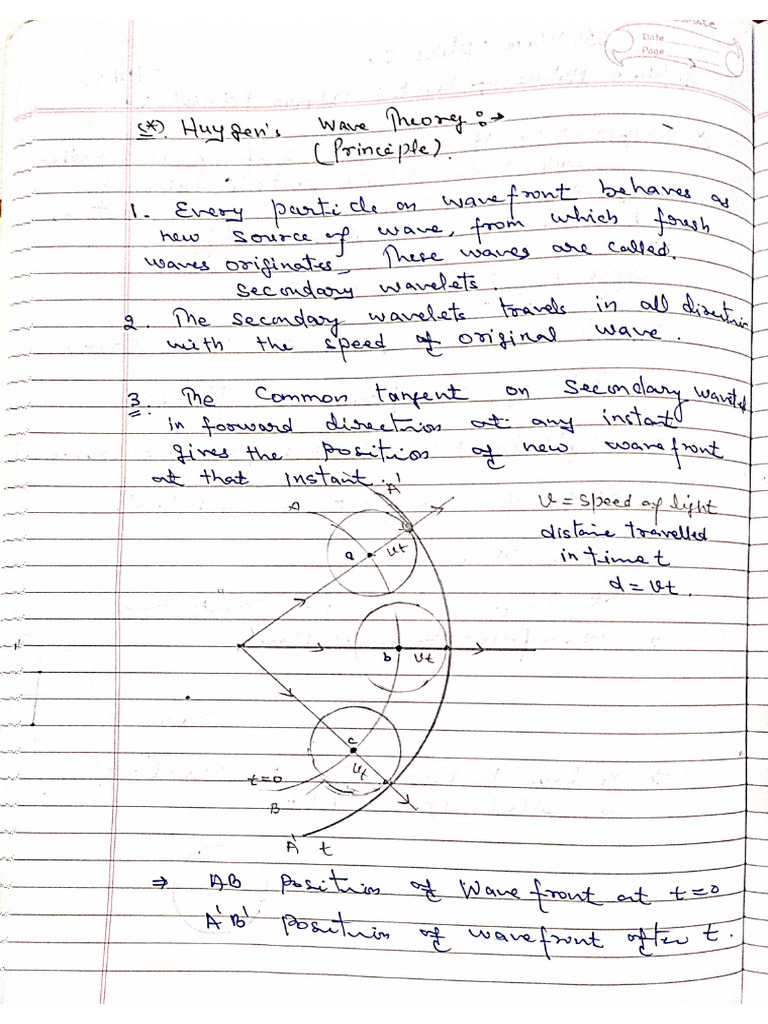 Date
Page
5*). Huygen's Wave Theorey :→
(Principle).
1. Every particle on wavefront behaves as
new source of wave, from which fresh
waves originates, These waves are called.
Secondary wavelets.
2. The secondary wavelets travels in all direction
with the speed of original wave.
3. The Common tangent on Secondary wavelet
in forward direction at any instant
gives the position of new wavefront
at that instant.
A'
A
v = speed of light
distance travelled
in time t
d = vt.
a vt
b vt
c
vt
t=0
B
A' t
⇒ AB Position of Wave front at t=0
A'B' Position of wavefront after t.